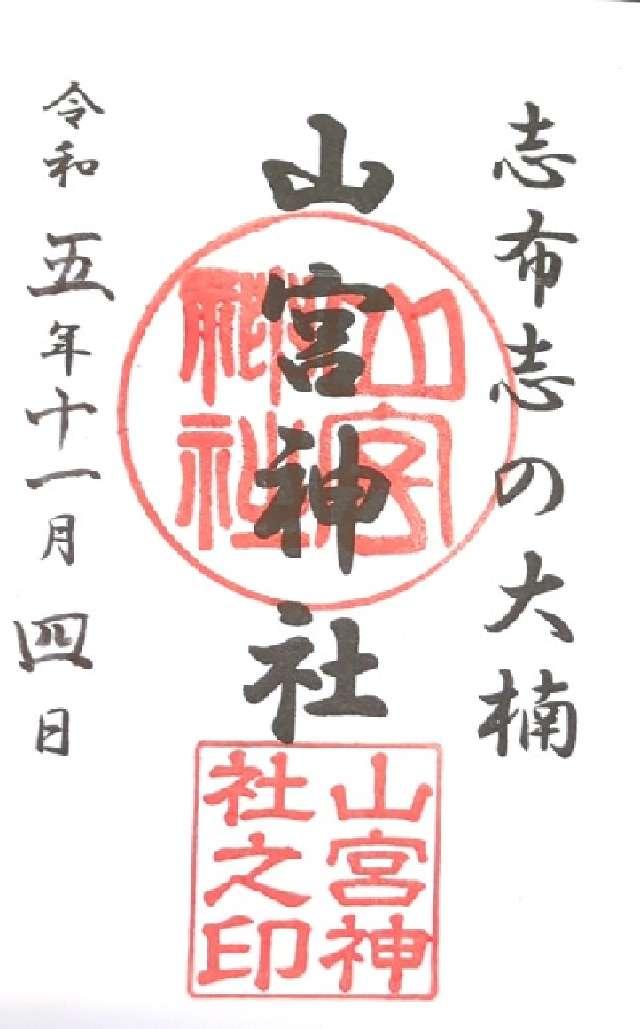 志布志の大楠
山宮神社
山宮神社
山宮神
社之印
令和五年十一月四日